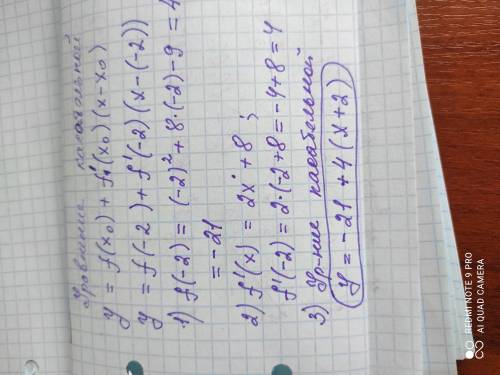 Уравнение касательной
y = f(x₀) + f'(x₀)(x-x₀)
y = f(-2) + f'(-2)(x-(-2))
1) f(-2) = (-2)² + 8·(-2) - 9 = 4
= -21
2) f'(x) = 2x + 8 ;
f'(-2) = 2·(-2+8 = -4+8 = 4
3) Ур-ние касательной
y = -21 + 4(x+2)
REDMI NOTE 9 PRO
AI QUAD CAMERA